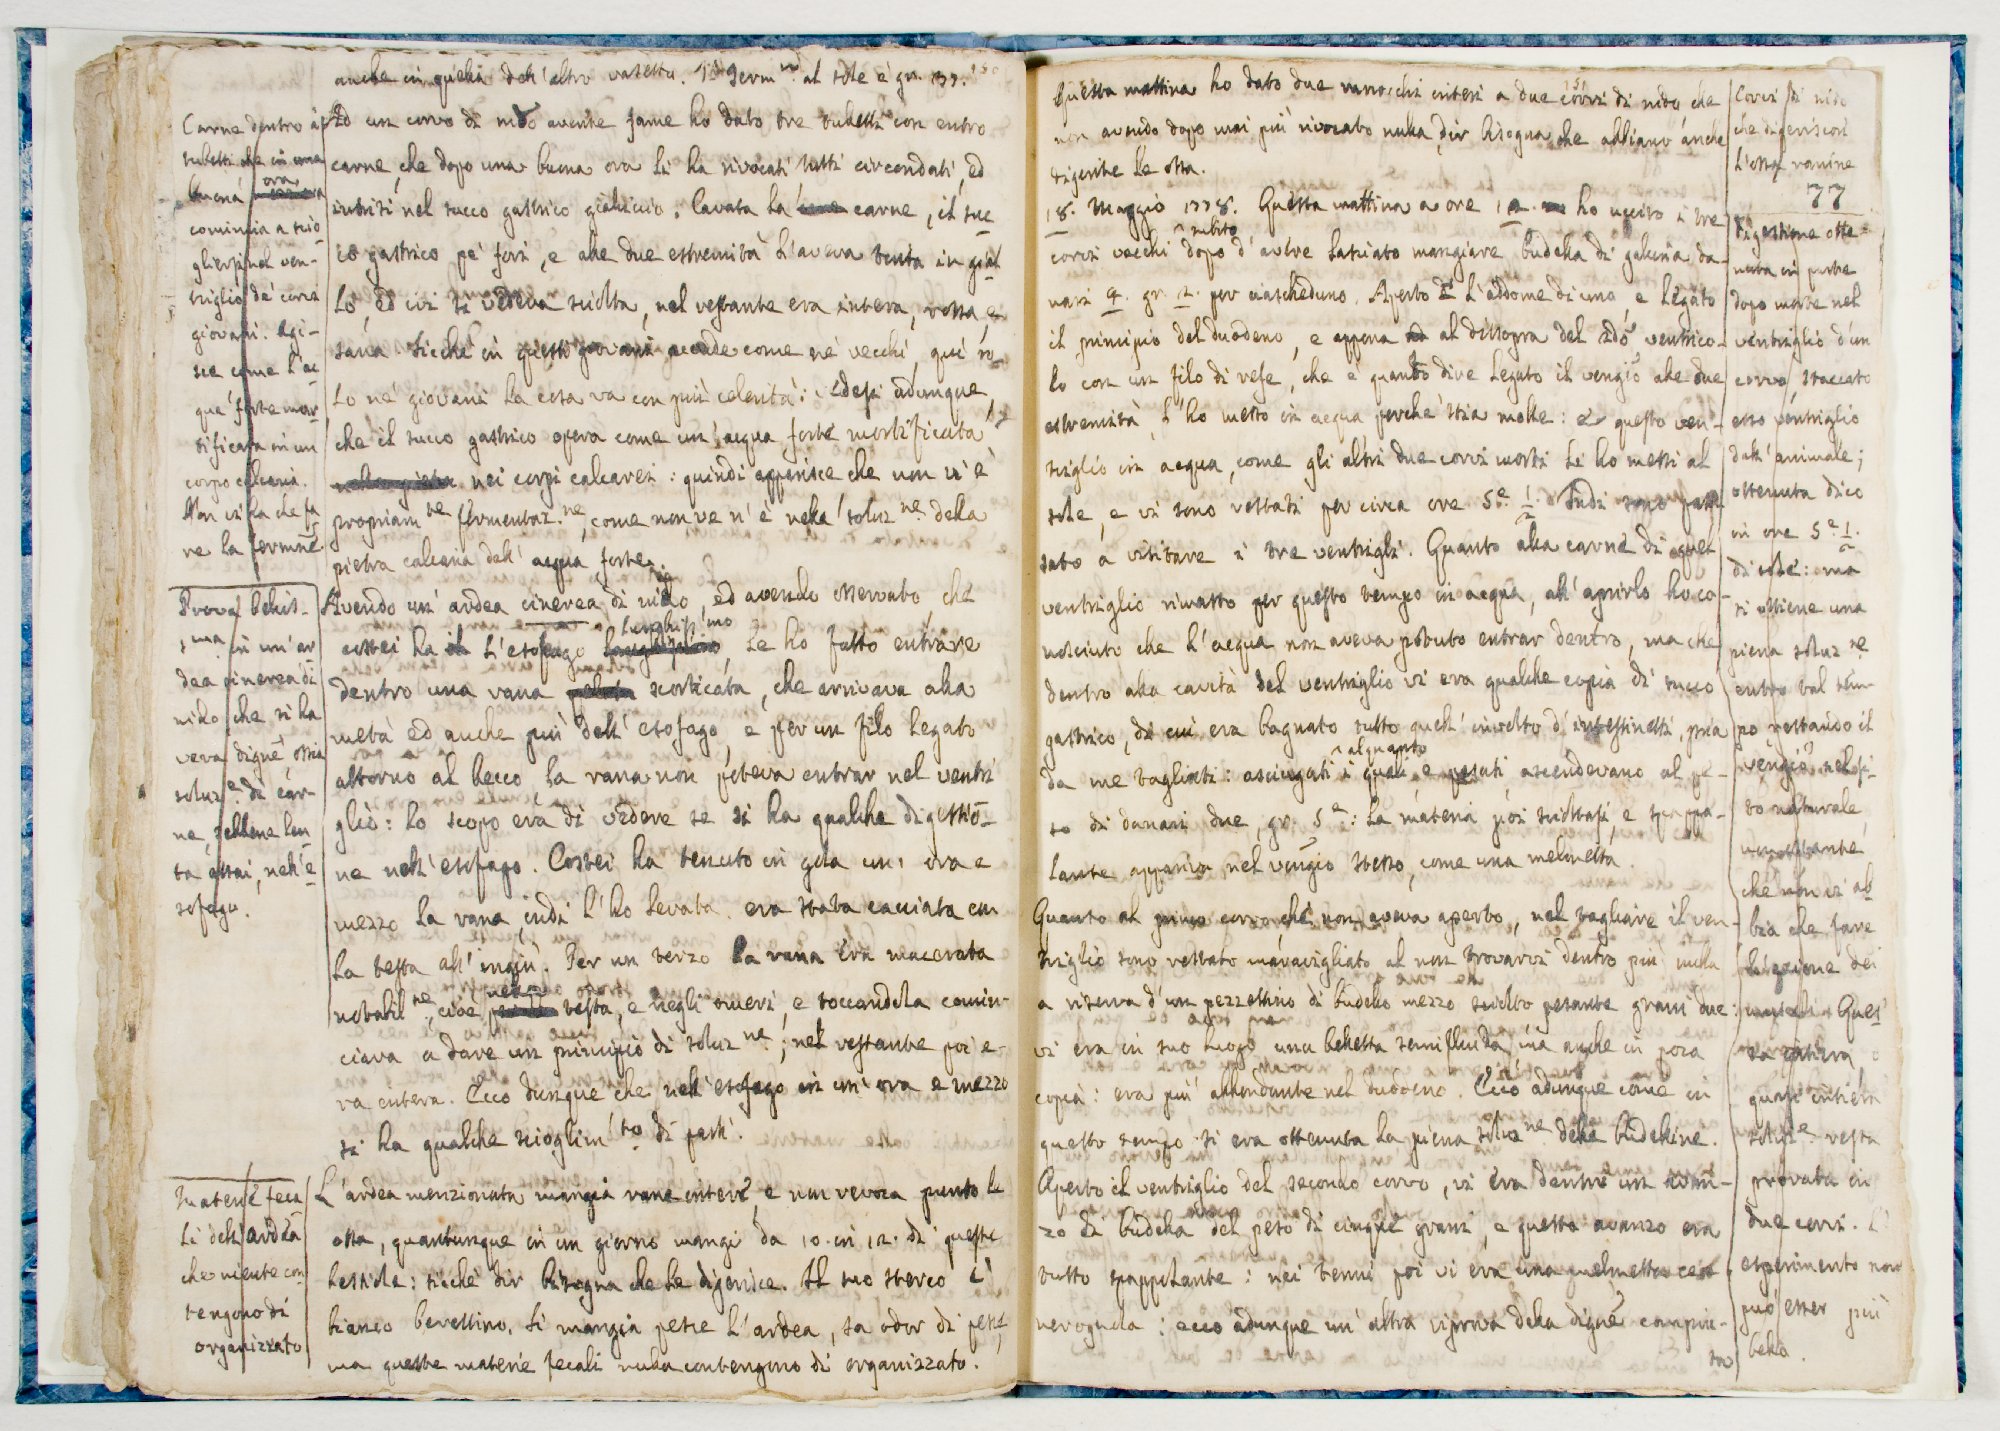 anche in quella dell'altro vasetto. Il Term.ro al sole è gr. 33.
Carne dentro a
tubetti che in una
buona ora
comincia a scio-
gliersi nel ven-
triglio de' corvi
giovani. Agi-
sce come l'ac-
qua forte mor-
tificata in un
corpo calcario.
Non vi ha che fa-
re la fermne
Ad un corvo di nido avente fame ho dato tre tubetti con entro
carne, che dopo una buona ora li ha rivocati tutti circondati, ed
intrisi nel succo gastrico gialliccio. Cavata la carne, il suc-
co gastrico pe' fori, e alle due estremità l'aveva tinta in gial-
lo, ed ivi si vedeva sciolta, nel restante era intera, rossa, e
sana. Sicchè in questi giovani accade come ne' vecchi, qui so-
lo ne' giovani la cosa va con più celerità: Vedesi adunque,
che il succo gastrico opera come un'acqua forte mortificata
nei corpi calcarei: quindi apparisce che non vi è
propriam.te fermentaz.ne, come non ve n'è nella soluz.ne della
pietra calcaria dall'acqua forte.
Prova bellis-
sima in un'ar-
dea cinerea di
nido che si ha
vera digne ossia
soluz.e di car-
ne, sebbene len-
ta assai, nell'e-
sofago.
Avendo un'ardea cinerea di nido, ed avendo osservato, che
costei ha l'esofago lunghissimo, le ho fatto entrare
dentro una rana scorticata, che arrivava alla
metà ed anche più dell'esofago, e per un filo legato
attorno al becco, la rana non poteva entrar nel ventri-
glio: lo scopo era di vedere se si ha qualche digestio-
ne nell'esofago. Costei ha tenuto in gola un'ora e
mezzo la rana, indi l'ho levata. era stata cacciata con
la testa all'ingiù. Per un terzo la rana era macerata
notabil.te, cioè nella testa, e negli omeri, e toccandola comin-
ciava a dare un principio di soluz.ne; nel restante poi e-
ra intera. Ecco dunque che nell'esofago in un'ora e mezzo
si ha qualche scioglim.to di parti.
Materie feca-
li dell'ardea
che niente con-
tengono di
organizzato
L'ardea menzionata mangia rane intere, e non revoca punto le
ossa, quantunque in un giorno mangi da 10. in 12. di queste
bestiole: sicchè dir bisogna che le digerisce. Il suo sterco è
bianco berettino. Si mangia pesce l'ardea, sa odor di pesce,
ma queste materie fecali nulla contengono di organizzato.
Questa mattina ho dato due ranocchi interi a due corvi di nido che
non avendo dopo mai più rivocato nulla, dir bisogna che abbiano anche
digerite le ossa.
Corvi di nido
che digeriscono
l'ossa ranine
77
18. Maggio 1778. Questa mattina a ore 12. ho ucciso i tre
corvi vecchi subito dopo d'avere lasciato mangiare budella di gallina da-
nari 4. gr. 12. per ciascheduno. Aperto l'addome di uno e legato
il principio del duodeno, e appena al dissopra del ventrico-
lo con un filo di refe, che è quanto dire legato il vengio alle due
estremità, l'ho messo in acqua perchè stia molle: e questo ven-
triglio in acqua, come gli altri due corvi morti li ho messi al
sole, e vi sono restati per circa ore 5.e 1/2. Indi sono pas-
sato a visitare i tre ventrigli. Quanto alla carne di quel
ventriglio rimasto per questo tempo in acqua, all'aprirlo ho co-
nosciuto che l'acqua non aveva potuto entrar dentro, ma che
dentro alla cavità del ventriglio vi era qualche copia di succo
gastrico, di cui era bagnato tutto quell'involto d'intestinetti, pria
da me tagliati: asciugati alquanto i quali, e pesati, ascendevano al pe-
so di danari due, gr. 5.e: la materia poi scioltasi, e spappo-
lante appariva nel vengio stesso, come una melmetta.
Quanto al primo corvo, che non aveva aperto, nel tagliare il ven-
triglio sono restato maravigliato al non trovarvi dentro più nulla
a riserva d'un pezzettino di budello mezzo sciolto pesante grani due:
vi era in suo luogo una belletta semifluida, ma anche in poca
copia: era più abbondante nel duodeno. Ecco adunque come in
questo tempo si era ottenuta la piena soluz.ne delle budelline.
Aperto il ventriglio del secondo corvo, vi era dentro un avan-
zo di budella del peso di cinque grani, e questo avanzo era
tutto spappolante: nei tenui poi vi era una melmetta ce-
nerognola: ecco adunque un'altra riprova della digne compiu-
ta
Digestione otte-
nuta in parte
dopo morte nel
ventriglio d'un
corvo staccato
esso ventriglio
dall'animale;
ottenuta dico
in ore 5.e 1/2.
di sole: ma
si ottiene una
piena soluz.ne
entro tal tem-
po restando il
vengio nel si-
to naturale,
nonostante
che non vi ab-
bia che fare
l'azione dei
muscoli. Ques-
ta
quasi intiera
soluz.e resta
provata in
due corvi. L'
esperimento non
può esser più
bello.